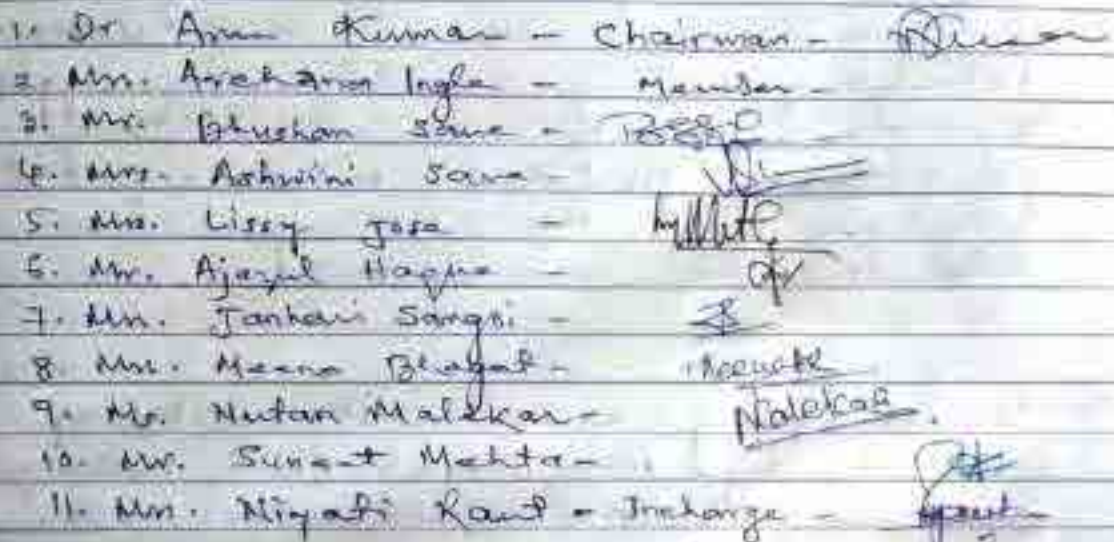 1. Dr Arun Kumar - Chairman -
2. Mrs. Archana Ingle - Member -
3. Mr. Bhushan Save -
4. Mrs. Ashwini Save -
5. Mrs. Lissy Jose -
6. Mr. Ajazul Haque -
7. Mrs. Jankavi Sangoi -
8. Mrs. Meena Bhagat -
9. Ms. Nutan Malekar - Nalekar
10. Mr. Sumeet Mehta -
11. Mrs. Niyati Raut - Incharge -